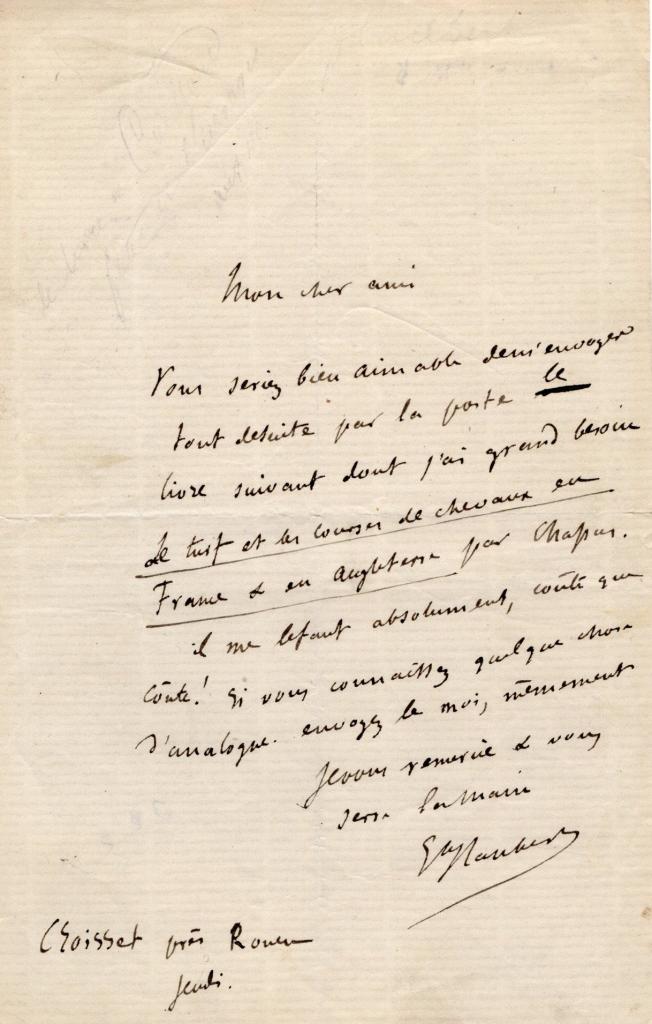 Mon cher ami
Vous seriez bien aimable de m'envoyer
tout desuite par la poste le
livre suivant dont j'ai grand besoin
Le turf et les courses de chevaux en
France & en Angleterre par Chapus.
il me le faut absolument, coûte que
coûte! Si vous connaissez quelque chose
d'analogue. envoyez le moi, mêmement
Je vous remercie & vous
serre la main
Gve Flaubert
Croisset près Rouen
jeudi.